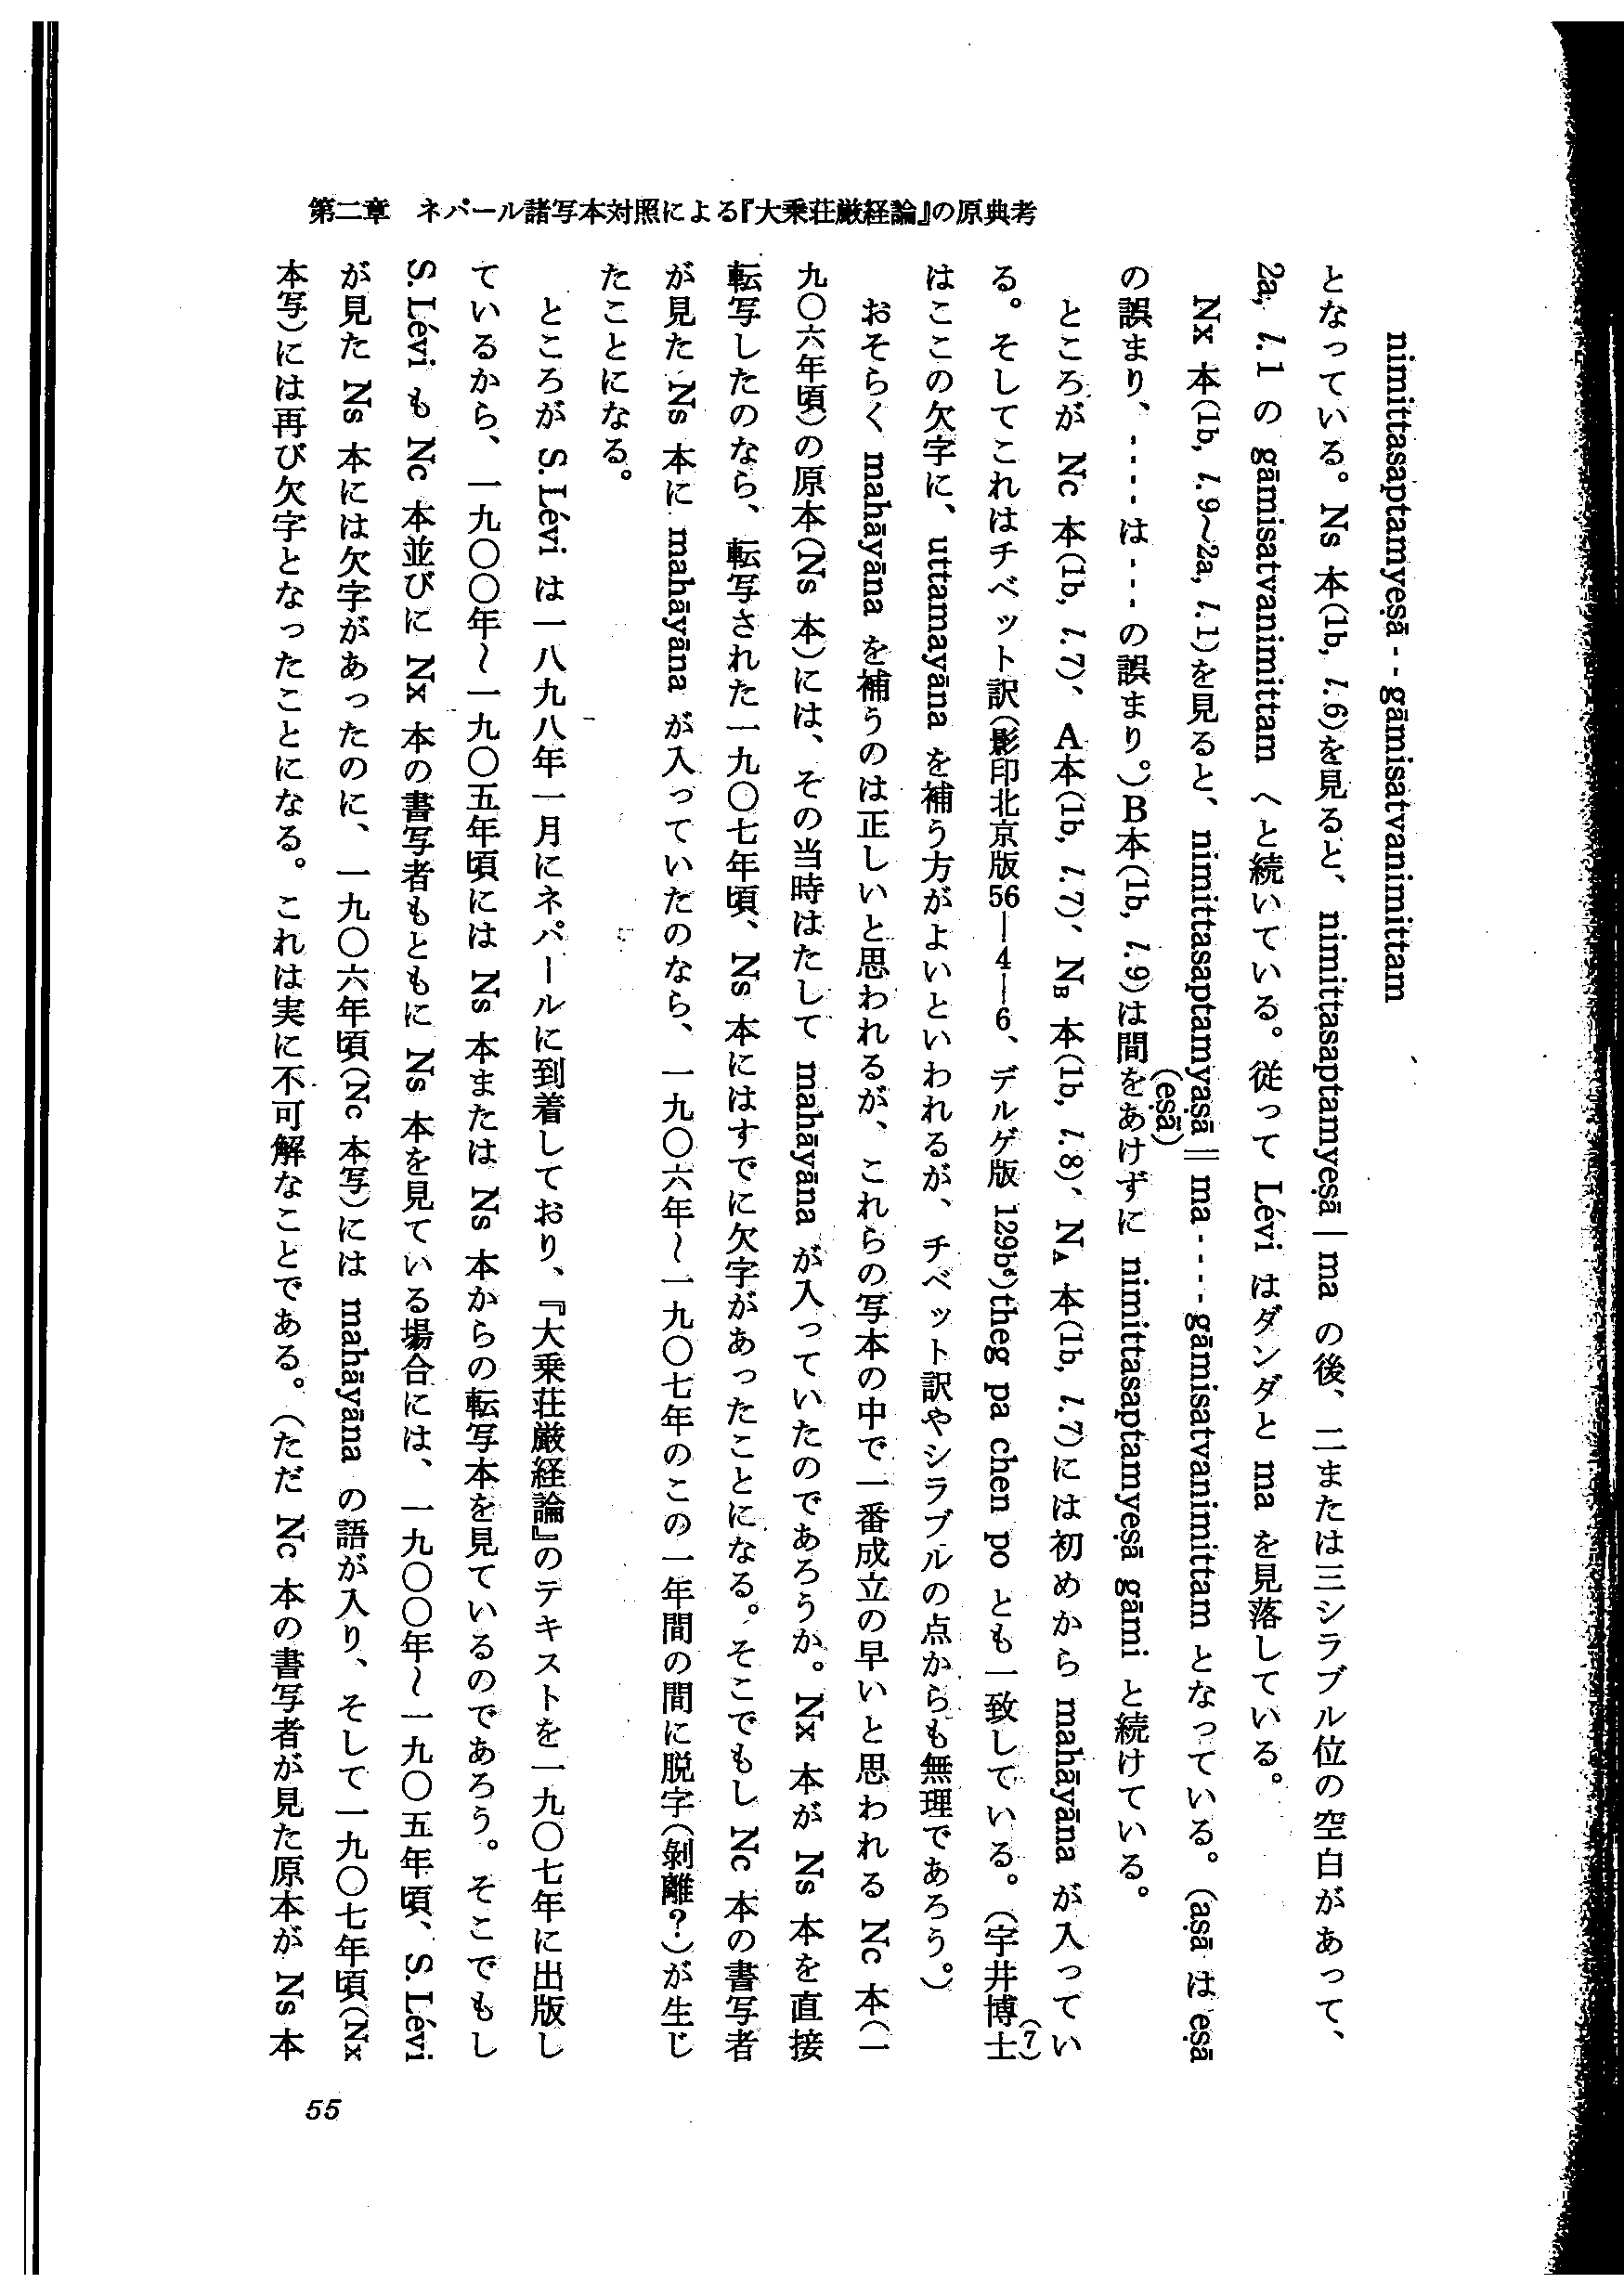 第二章　ネパール諸写本対照による『大乗荘厳経論』の原典考
nimittasaptamyeṣā - - gāmisatvanimittam
となっている。Ns 本(1b, l. 6)を見ると、nimittasaptamyeṣā | ma の後、二または三シラブル位の空白があって、
2a, l. 1 の gāmisatvanimittam へと続いている。従って Lévi はダンダと ma を見落している。
Nx 本(1b, l. 9〜2a, l. 1)を見ると、nimittasaptamyaṣā || ma - - - gāmisatvanimittam となっている。(aṣā は eṣā
(eṣā)
の誤まり、- - - - は - - - の誤まり。)B本(1b, l. 9)は間をあけずに nimittasaptamyeṣā gāmi と続けている。
ところが Nc 本(1b, l. 7)、A本(1b, l. 7)、NB 本(1b, l. 8)、NA 本(1b, l. 7)には初めから mahāyāna が入ってい
る。そしてこれはチベット訳(影印北京版56—4—6、デルゲ版 129b⁶)theg pa chen po とも一致している。(宇井博士(7)
はここの欠字に、uttamayāna を補う方がよいといわれるが、チベット訳やシラブルの点からも無理であろう。)
おそらく mahāyāna を補うのは正しいと思われるが、これらの写本の中で一番成立の早いと思われる Nc 本(一
九〇六年頃)の原本(Ns 本)には、その当時はたして mahāyāna が入っていたのであろうか。Nx 本が Ns 本を直接
転写したのなら、転写された一九〇七年頃、Ns 本にはすでに欠字があったことになる。そこでもし Nc 本の書写者
が見た Ns 本に mahāyāna が入っていたのなら、一九〇六年〜一九〇七年のこの一年間の間に脱字(剝離?)が生じ
たことになる。
ところが S. Lévi は一八九八年一月にネパールに到着しており、『大乗荘厳経論』のテキストを一九〇七年に出版し
ているから、一九〇〇年〜一九〇五年頃には Ns 本または Ns 本からの転写本を見ているのであろう。そこでもし
S. Lévi も Nc 本並びに Nx 本の書写者もともに Ns 本を見ている場合には、一九〇〇年〜一九〇五年頃、S. Lévi
が見た Ns 本には欠字があったのに、一九〇六年頃(Nc 本写)には mahāyāna の語が入り、そして一九〇七年頃(Nx
本写)には再び欠字となったことになる。これは実に不可解なことである。(ただ Nc 本の書写者が見た原本が Ns 本
55